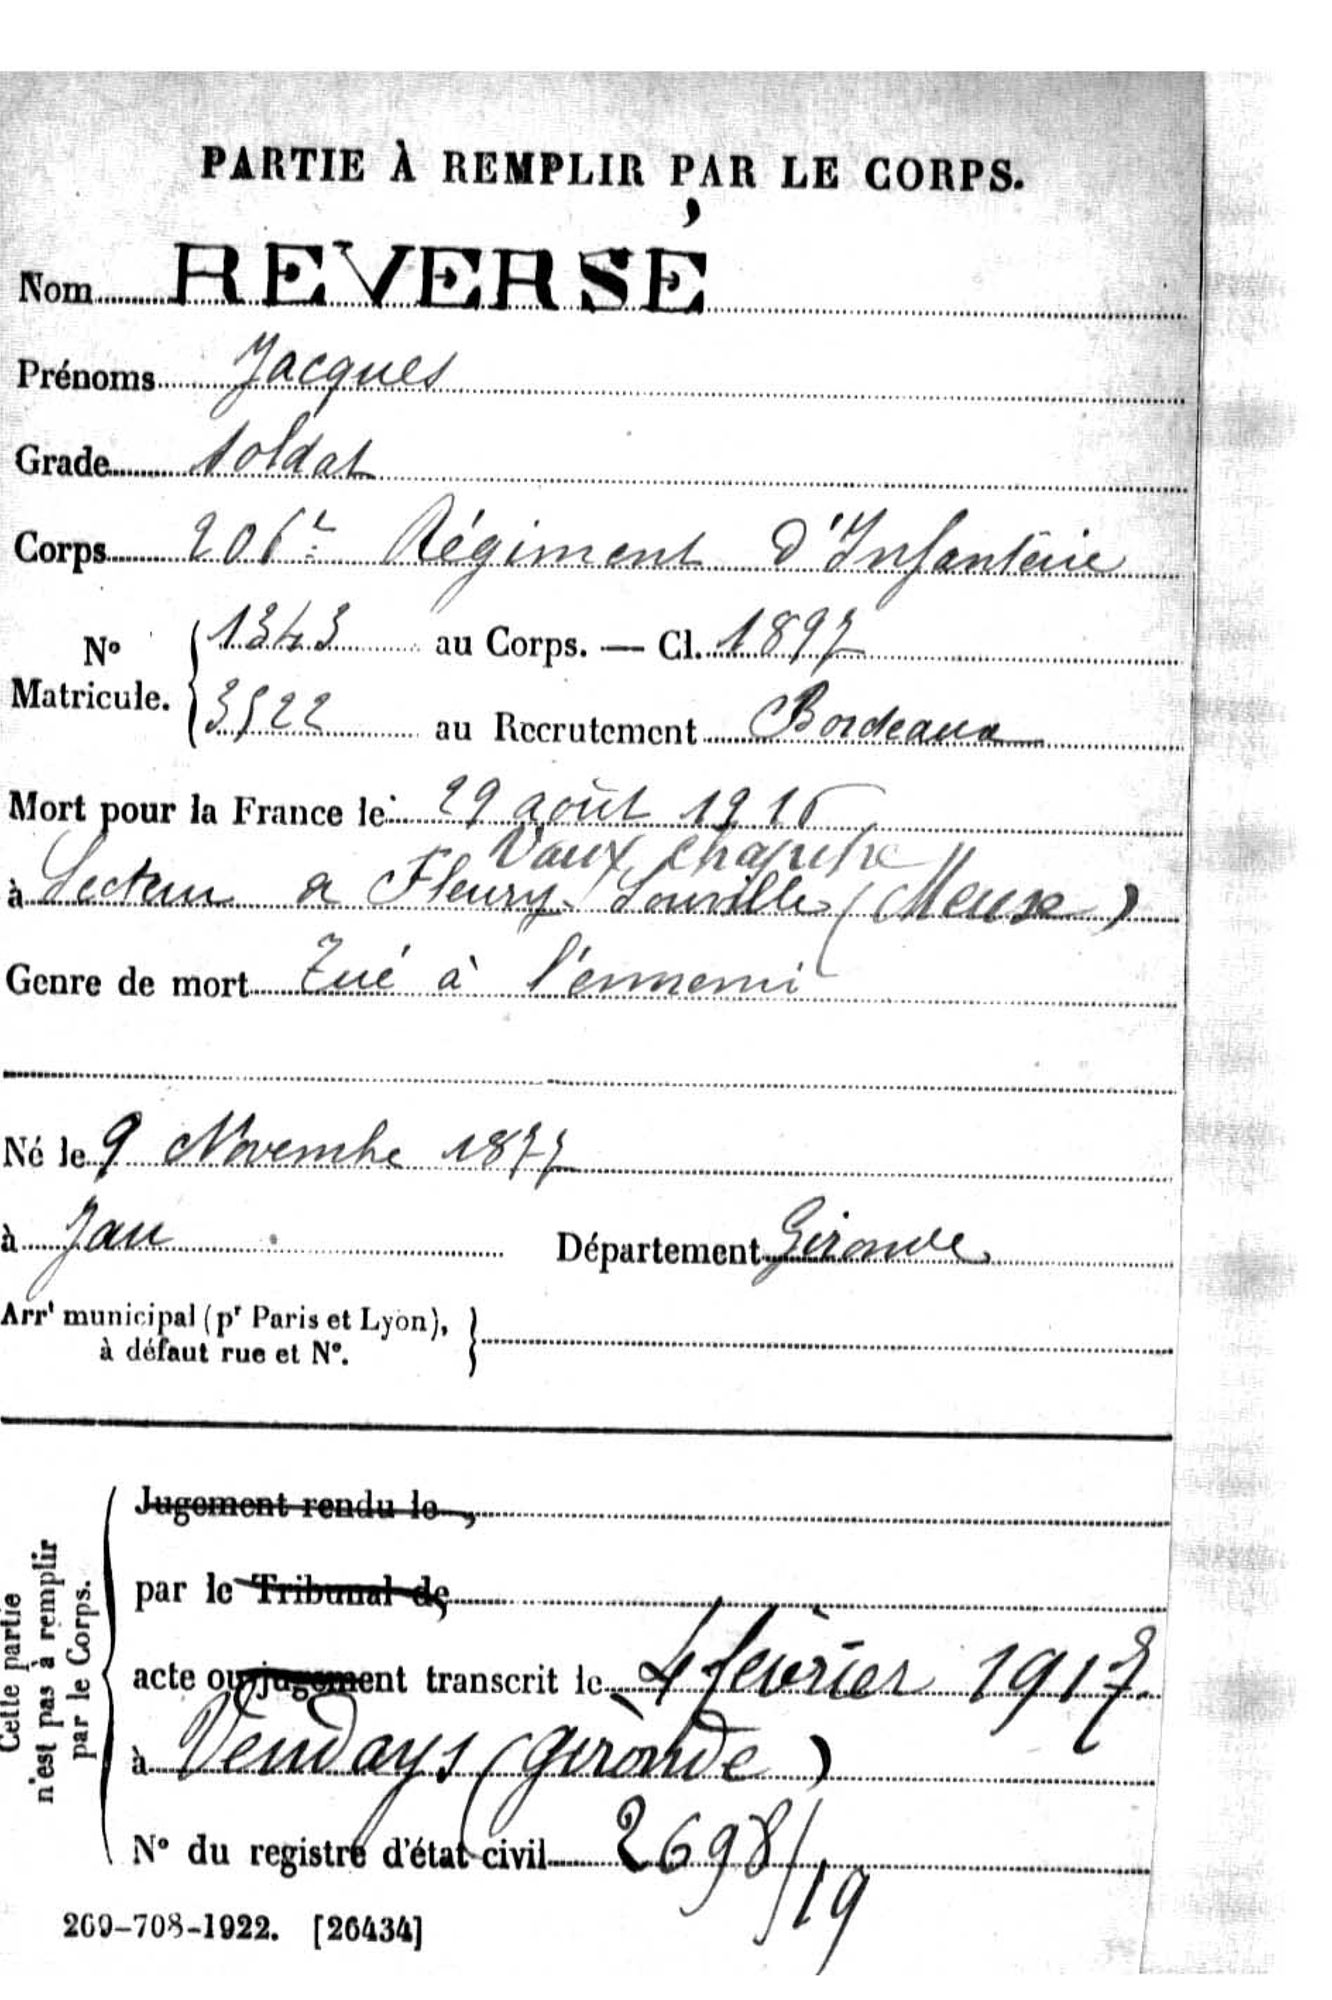 PARTIE À REMPLIR PAR LE CORPS.
Nom REVERSÉ
Prénoms Jacques
Grade Soldat
Corps 206e Régiment d'Infanterie
No Matricule. 1343 au Corps. — Cl. 1897
3522 au Recrutement Bordeaux
Mort pour la France le 29 août 1916
Vaux chapitre
à Secteur a Fleury Souville (Meuse)
Genre de mort Tué à l'ennemi
Né le 9 Novembre 1877
à Jau Département Gironde
Arrt municipal (pr Paris et Lyon),
à défaut rue et No.
Cette partie n'est pas à remplir par le Corps.
Jugement rendu le
par le Tribunal de
acte ou jugement transcrit le 4 février 1917
à Vendays (Gironde)
No du registre d'état civil 2698/19
269-708-1922. [26434]